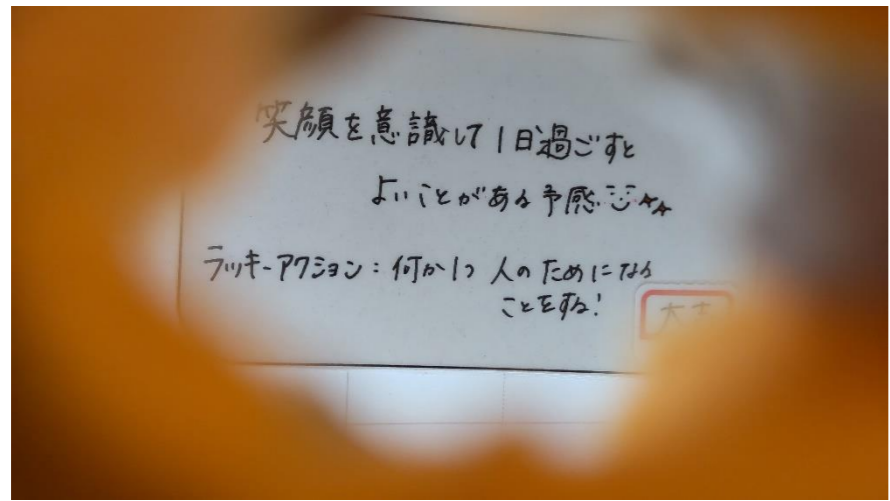 笑顔を意識して1日過ごすと
よいことがある予感
ラッキーアクション：何か1つ 人のためになる
ことをする！